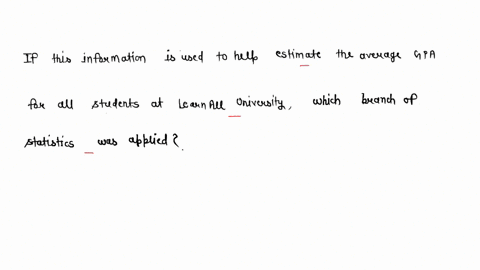 If this information is used to help estimate the average GPA
for all students at LearnAll University, which branch of
statistics was applied?